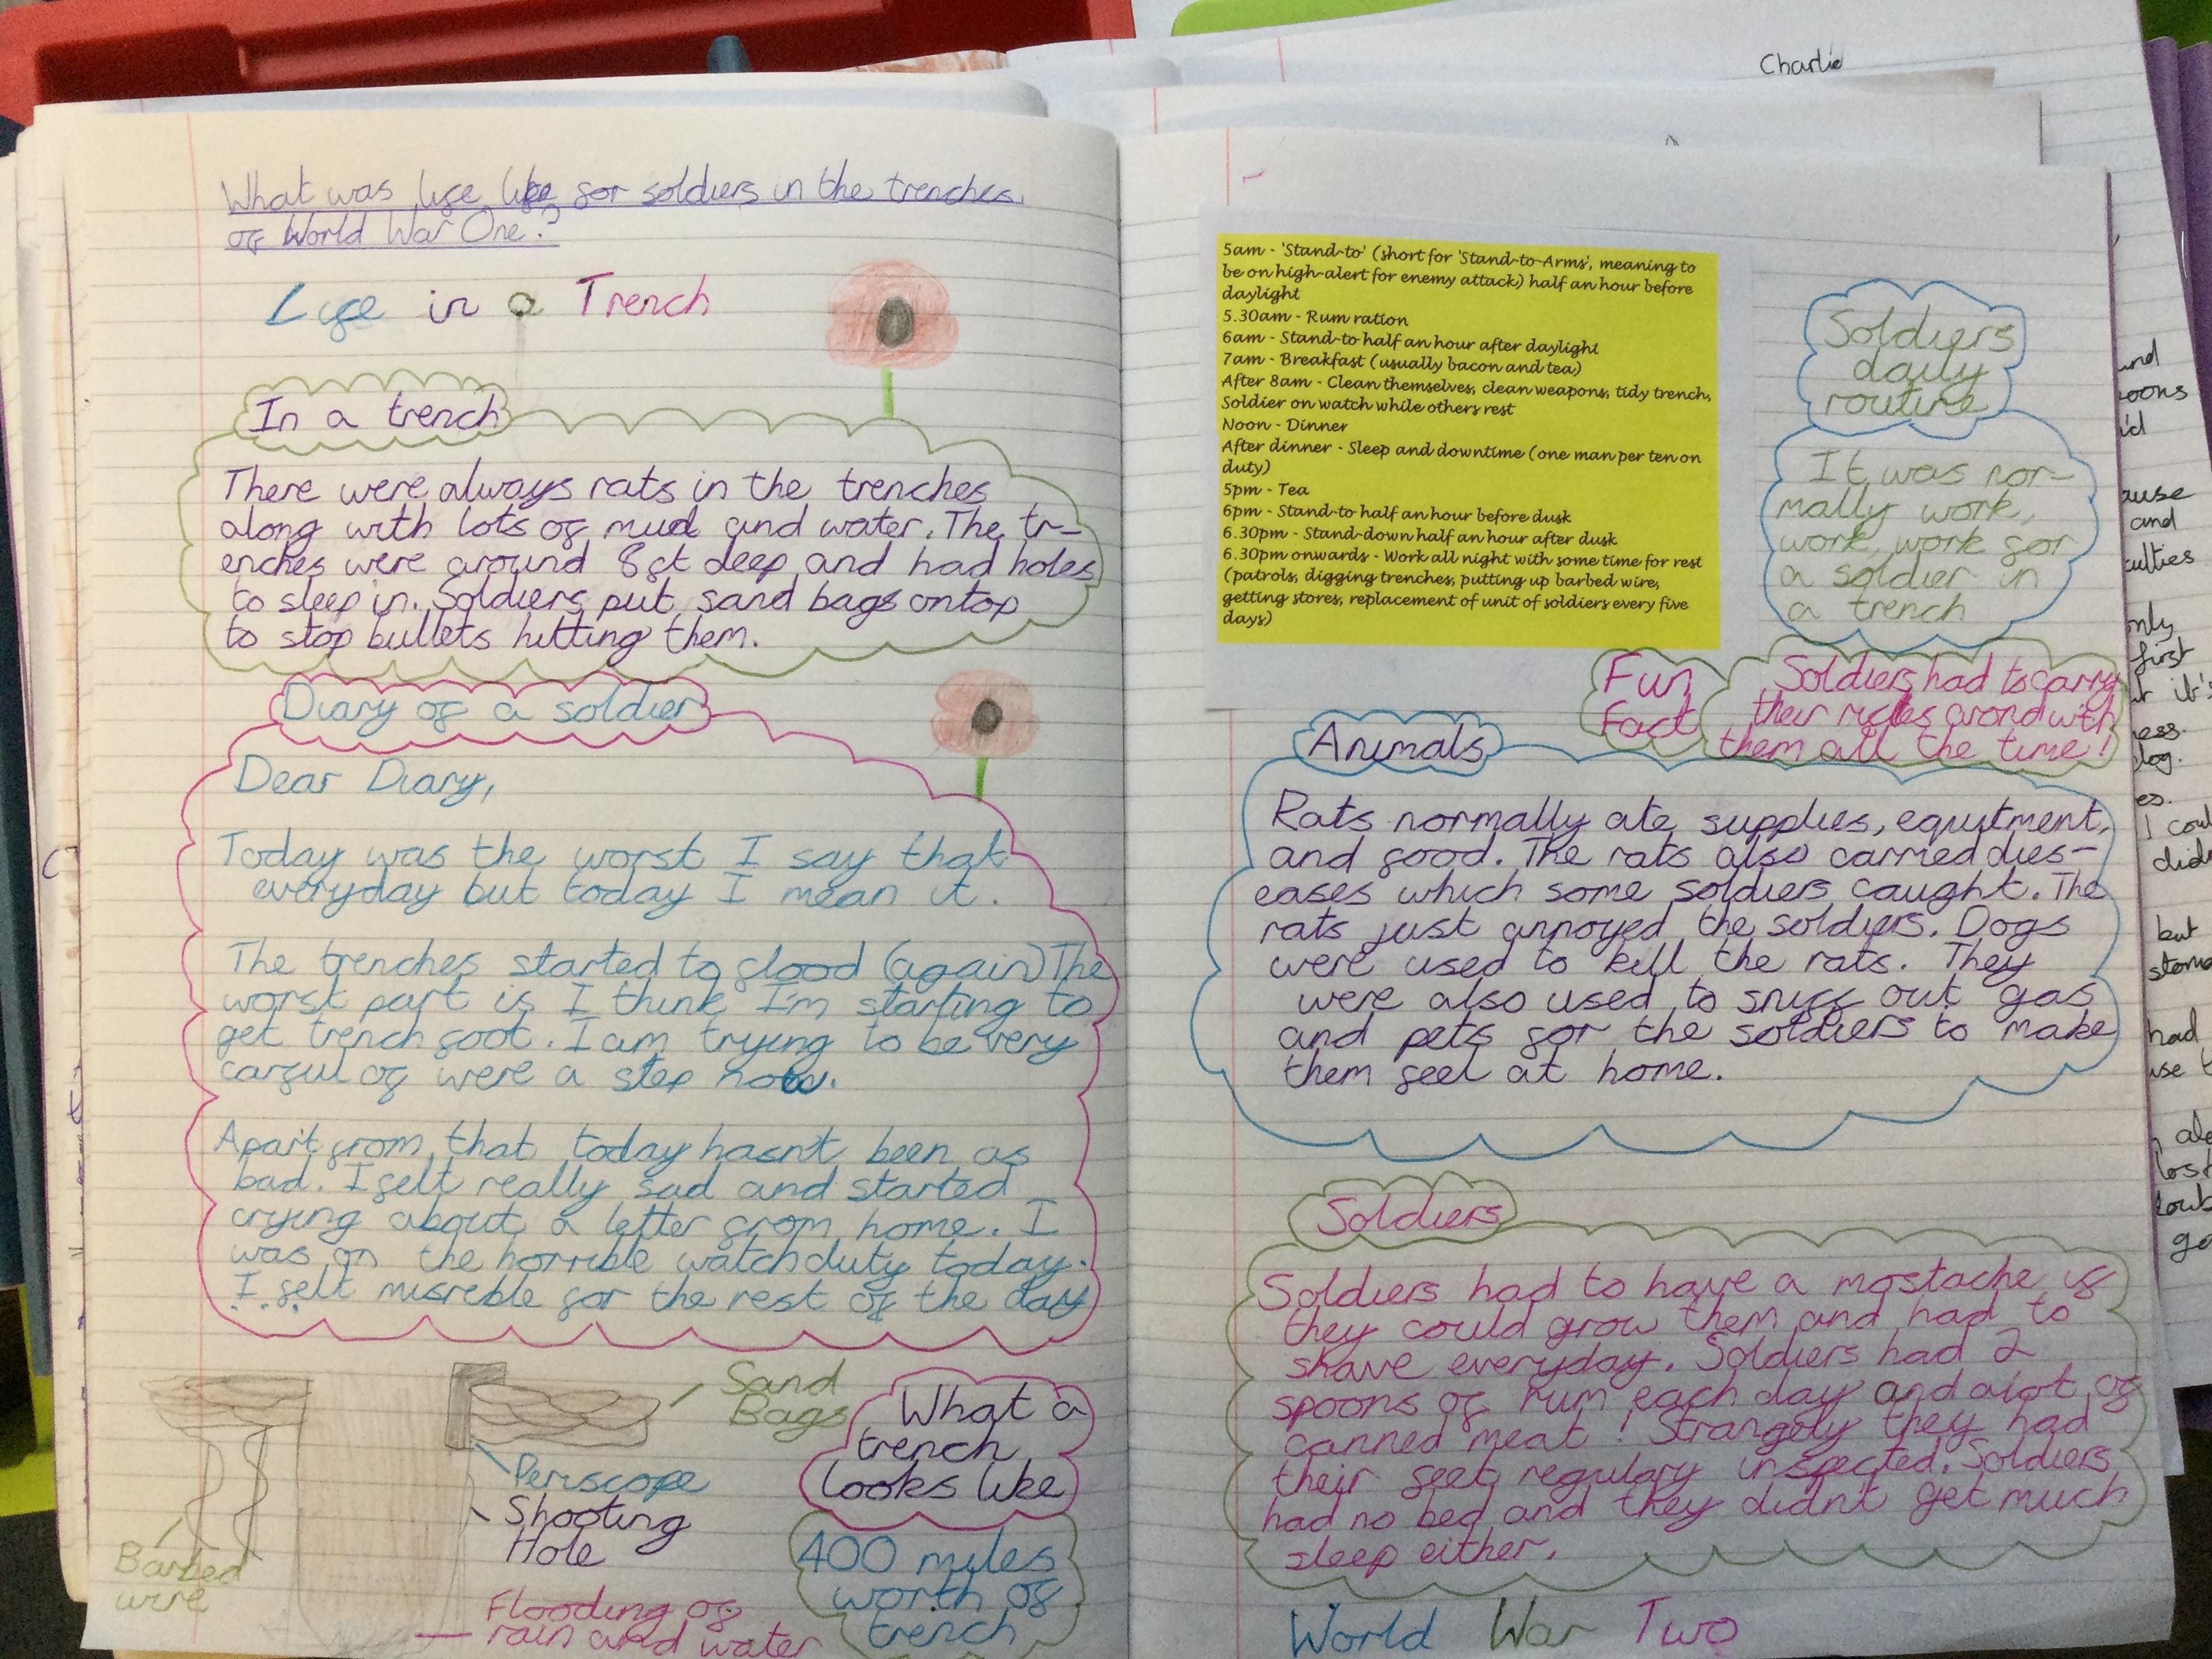 What was life like for soldiers in the trenches
of World War One?
Life in a Trench
In a trench
There were always rats in the trenches
along with lots of mud and water. The tr-
enches were around 8ft deep and had holes
to sleep in. Soldiers put sand bags ontop
to stop bullets hitting them.
Diary of a soldier
Dear Diary,
Today was the worst I say that
everyday but today I mean it.
The trenches started to flood (again) The
worst part is I think I'm starting to
get trench foot. I am trying to be very
carful of were a step now.
Apart from that today hasn't been as
bad. I felt really sad and started
crying about a letter from home. I
was on the horrible watch duty today.
I felt misreble for the rest of the day
Sand
Bags
Periscope
Shooting
Hole
Barbed
wire
Flooding of
rain and water
What a
trench
looks like
400 miles
worth of
trench
Charlie
5am - 'Stand-to' (short for 'Stand-to-Arms', meaning to
be on high-alert for enemy attack) half an hour before
daylight
5.30am - Rum ration
6am - Stand-to half an hour after daylight
7am - Breakfast (usually bacon and tea)
After 8am - Clean themselves, clean weapons, tidy trench,
Soldier on watch while others rest
Noon - Dinner
After dinner - Sleep and downtime (one man per ten on
duty)
5pm - Tea
6pm - Stand-to half an hour before dusk
6.30pm - Stand-down half an hour after dusk
6.30pm onwards - Work all night with some time for rest
(patrols, digging trenches, putting up barbed wire,
getting stores, replacement of unit of soldiers every five
days)
Soldiers
daily
routine
It was nor-
mally work,
work, work for
a soldier in
a trench
Fun
Fact
Soldiers had to carry
their rifles arond with
them all the time!
Animals
Rats normally ate supplies, equitment,
and food. The rats also carried dies-
eases which some soldiers caught. The
rats just annoyed the soldiers. Dogs
were used to kill the rats. They
were also used to sniff out gas
and pets for the soldiers to make
them feel at home.
Soldiers
Soldiers had to have a mostache if
they could grow them and had to
shave everyday. Soldiers had 2
spoons of rum each day and alot of
canned meat! Strangely they had
their feet regulary inspected. Soldiers
had no bed and they didn't get much
sleep either.
World War Two
and
ause
and
culties
only
first
it's
log.
es.
I coul
but
had
use t